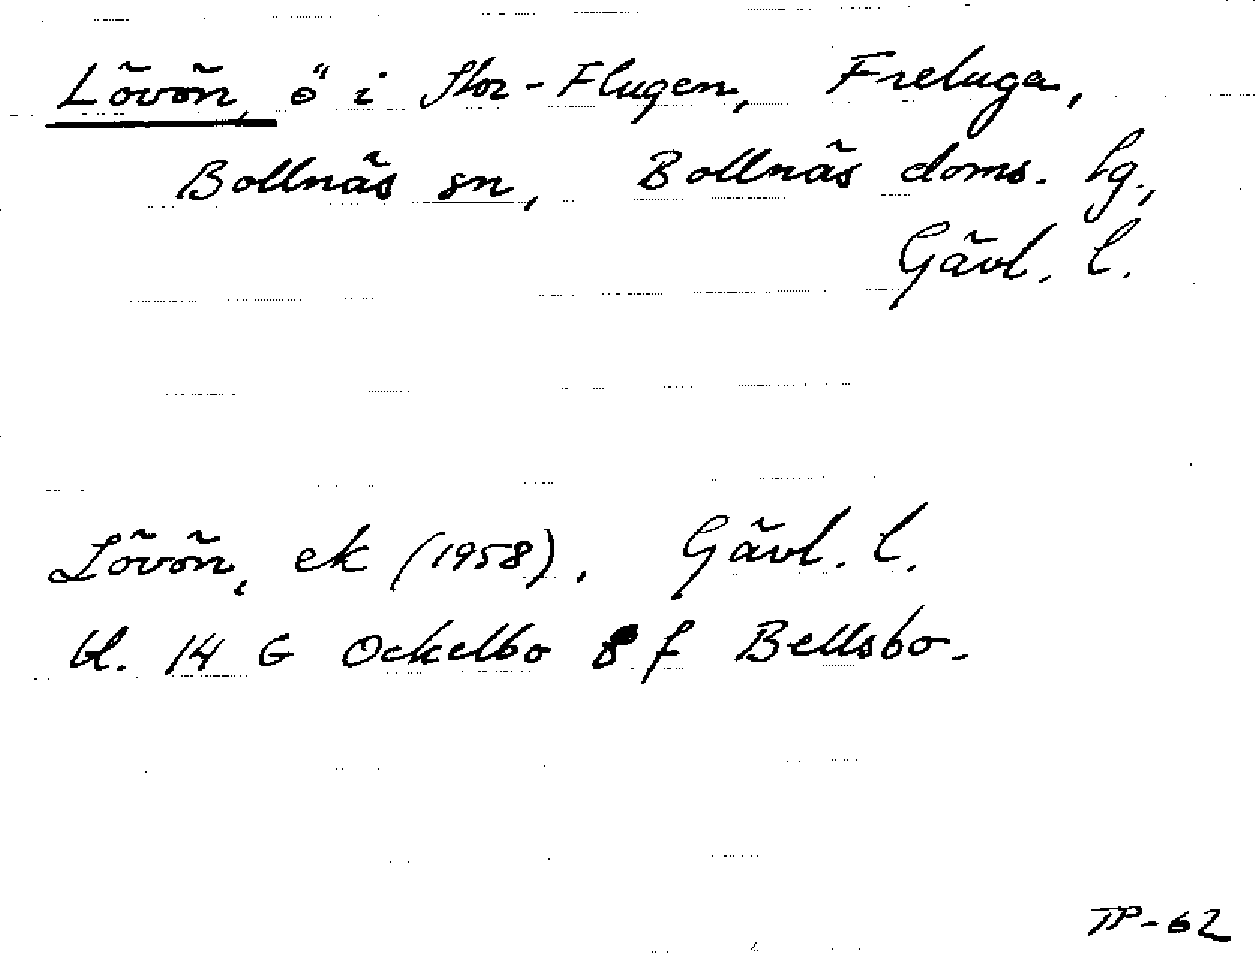 Lövön, ö i Stor-Flugen, Freluga,
Bollnäs sn, Bollnäs doms. lg.,
Gävl. l.
Lövön, ek (1958), Gävl. l.
bl. 14 G Ockelbo 8 f Bellsbo.
TP-62